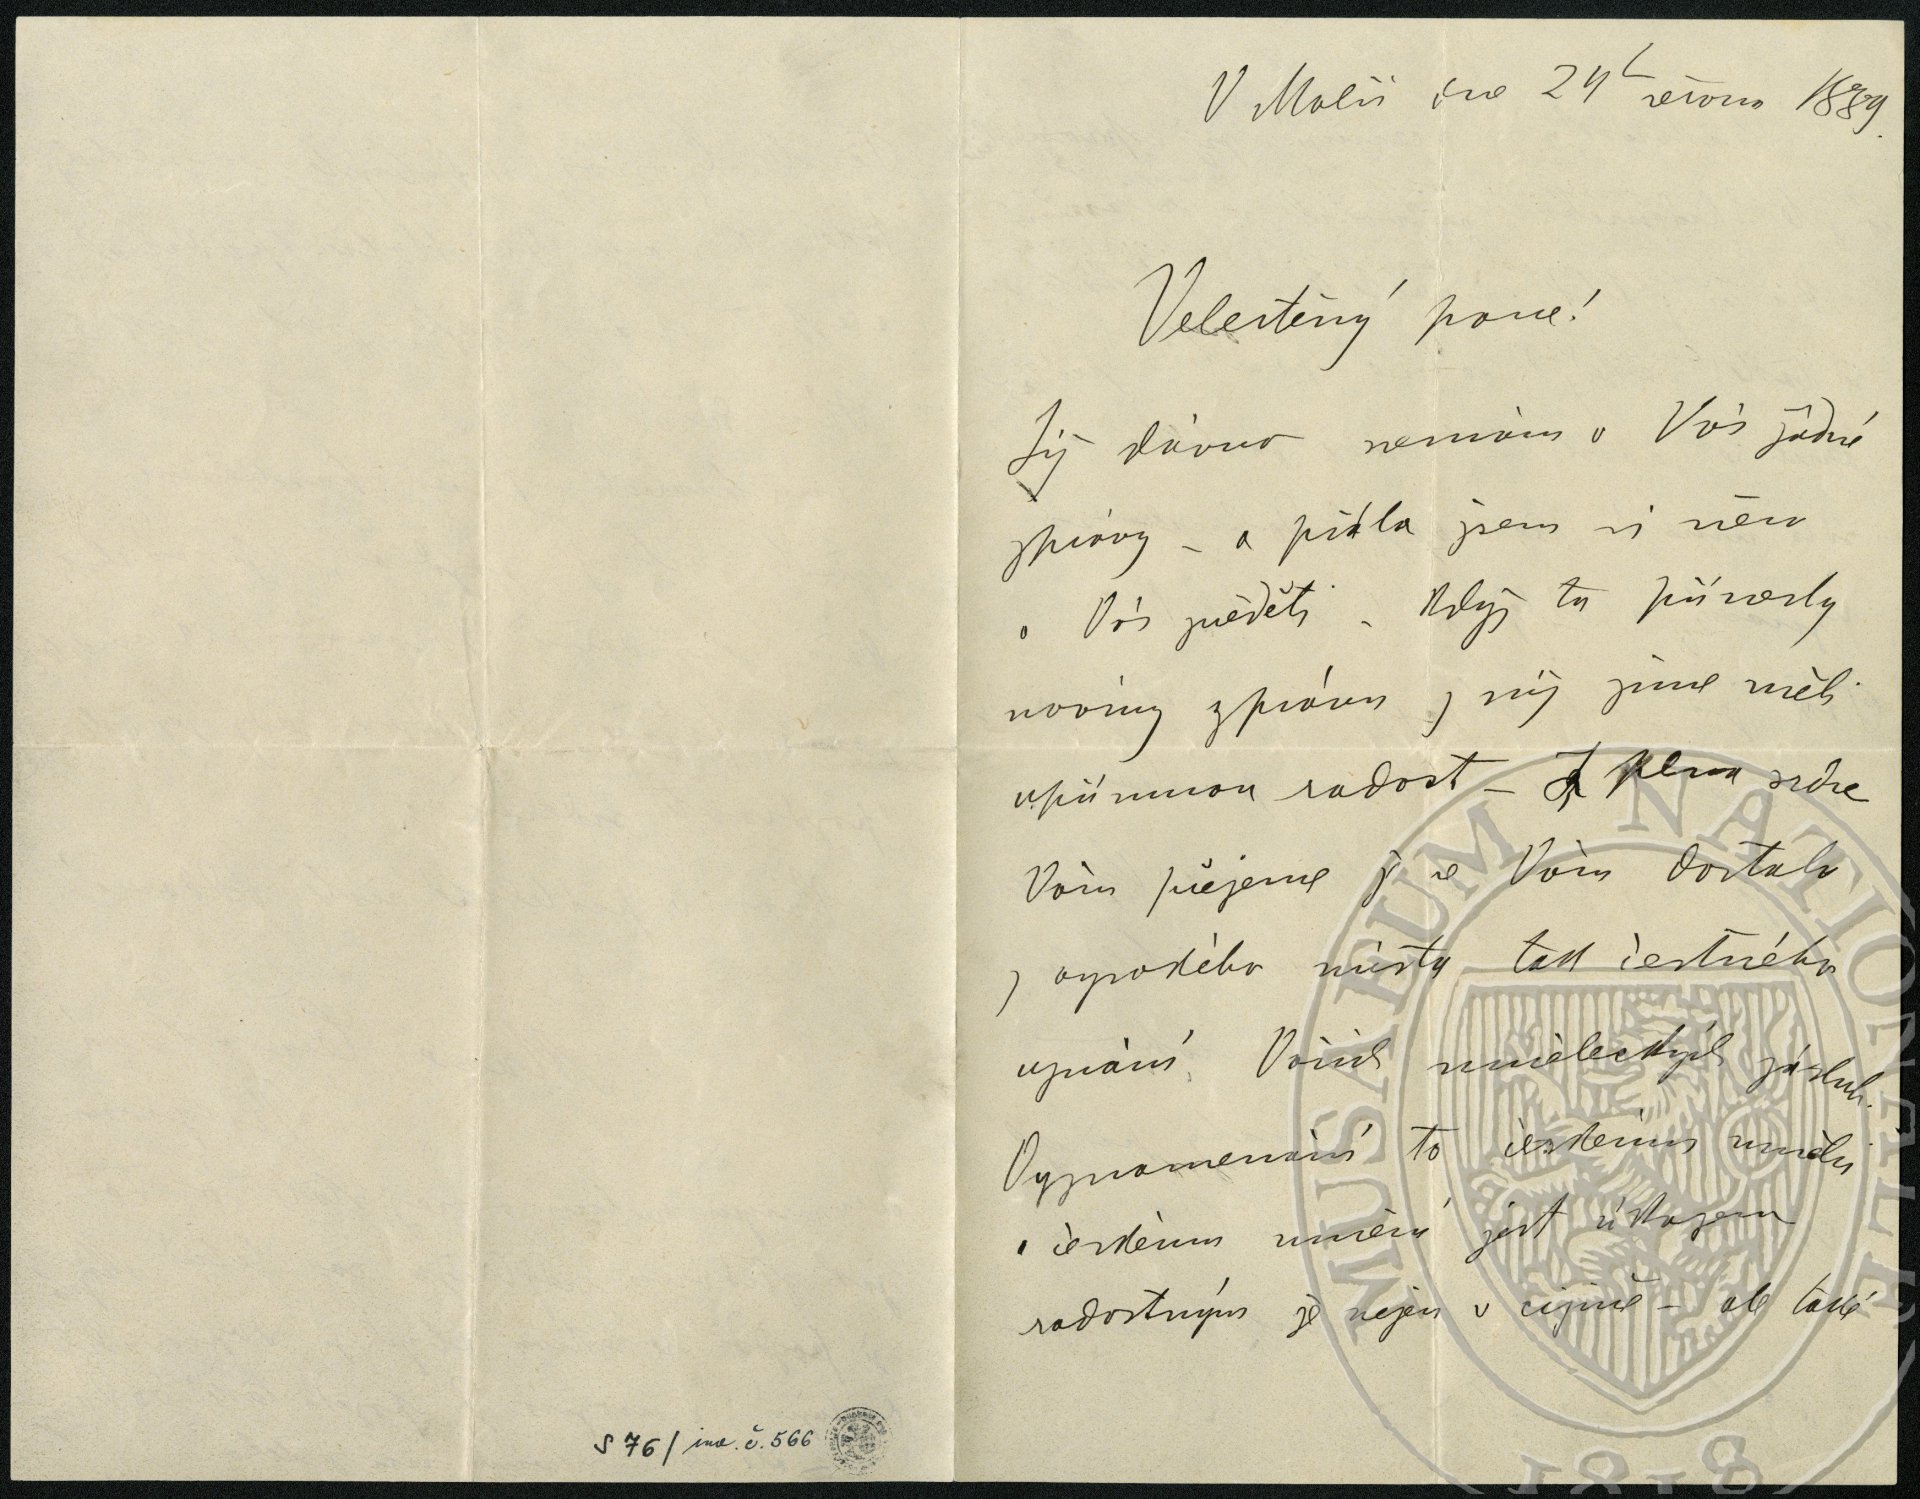 V Malči dne 24 června 1889.
Velectěný pane!
Již dávno nemám o Vás žádné
zprávy – a přála jsem si něco
o Vás zvěděti. Když tu přinesly
noviny zprávu z níž jsme měli
upřímnou radost – Z plna srdce
Vám přejeme že se Vám dostalo
z vysokého místa tak čestného
uznání Vašich uměleckých zásluh.
Vyznamenání to českému umělci
i českému umění jest úkazem
radostným že nejen v cizině – ale také
S 76 / inv. č. 566
MUSAEUM NATIONALE
1818